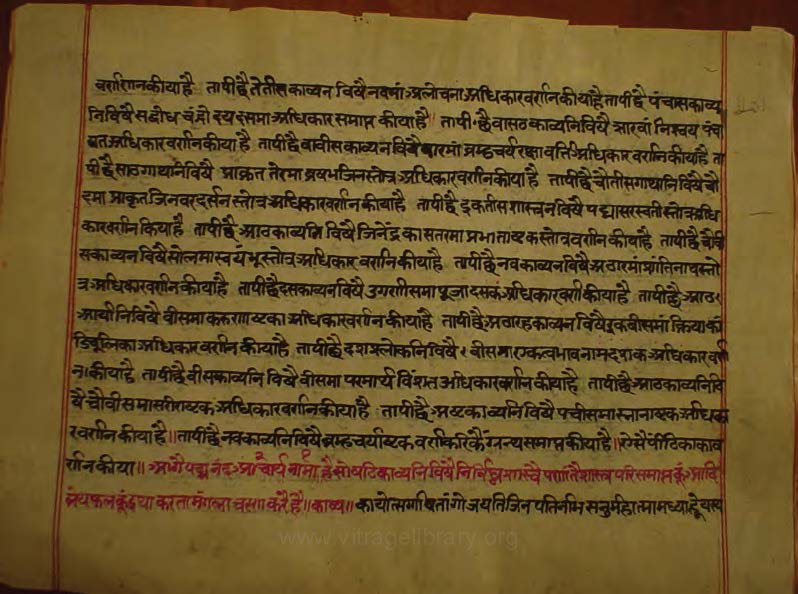 वर्णानकीया है तापीछै तेतीस काव्यन विषै नवमां अलोचना अधिकार वर्णन कीया है तापीछै पंचास काव्य
नि विषै सद्बोध चंद्रोदय दसमा अधिकार समाप्त कीया है तापीछै वासठ काव्यनि विषै ग्यारवां निश्चय पंचा
शत अधिकार वर्णन कीया है तापीछै वावीस काव्यन विषै बारमां ब्रम्हचर्य रक्षा वर्त्ति अधिकार वर्णन कीया है ता
पीछै साठ गाथानि विषै प्राक्रत तेरमा ऋषभजिनस्तोत्र अधिकार वर्णन कीया है तापीछै चौतीस गाथानि विषै चौ
दमा प्राकृत जिनवर दर्सन स्तोत्र अधिकार वर्णन कीया है तापीछै इकतीस विषै सरस्वती स्तोत्र अधि
कार वर्णन किया है तापीछै आठ काव्यनि विषै जिनेंद्र का सतरमा प्रभाताष्टक स्तोत्र वर्णन कीया है तापीछै चौवी
स काव्यन विषै सोलमा स्वयंभू स्तोत्र अधिकार वर्णन कीया है तापीछै नव काव्यन विषै अठारमां शांतिनाथ स्तो
त्र अधिकार वर्णन कीया है तापीछै दस काव्यन विषै उगणीसमा पूजा अधिकार वर्ण कीया है तापीछै आठ
आर्यानि विषै वीसमा करुणाष्टका अधिकार वर्णन कीया है तापीछै अठारह काव्यन विषै इकवीसमां क्रिया कां
ड चूलिका अधिकार वर्णन कीया है तापीछै दश श्लोकनि विषै वीसमा एकत्व भावना अधिकार वर्ण
न कीया है तापीछै वीस काव्यनि विषै वीसमा परमार्थ विंशत अधिकार वर्णन कीया है तापीछै आठ काव्यनि वि
षै चौवीसमा सरीराष्टक अधिकार वर्णन कीया है तापीछै अष्ट काव्यनि विषै पचीसमा स्नानाष्टक अधिका
र वर्णन कीया है ॥ तापीछै नव काव्यनि विषै ब्रम्हचर्याष्टक वर्णन करिकै ग्रन्थ समाप्त कीया है ॥ ऐसै पीठिका का व
र्णन कीया ॥ आगै पद्मनंद आचार्य नामा है सो काव्यनि विषै निर्विघ्न शास्त्र परिसमाप्त कूं आदि
लेय फल कूं करता मंगला चरण करै है ॥ काव्य ॥ कायोत्सर्गा जयति जिन पतिर्नाभि सूनुर्महात्मा मध्यान्हे यस्य
www.vitragelibrary.org